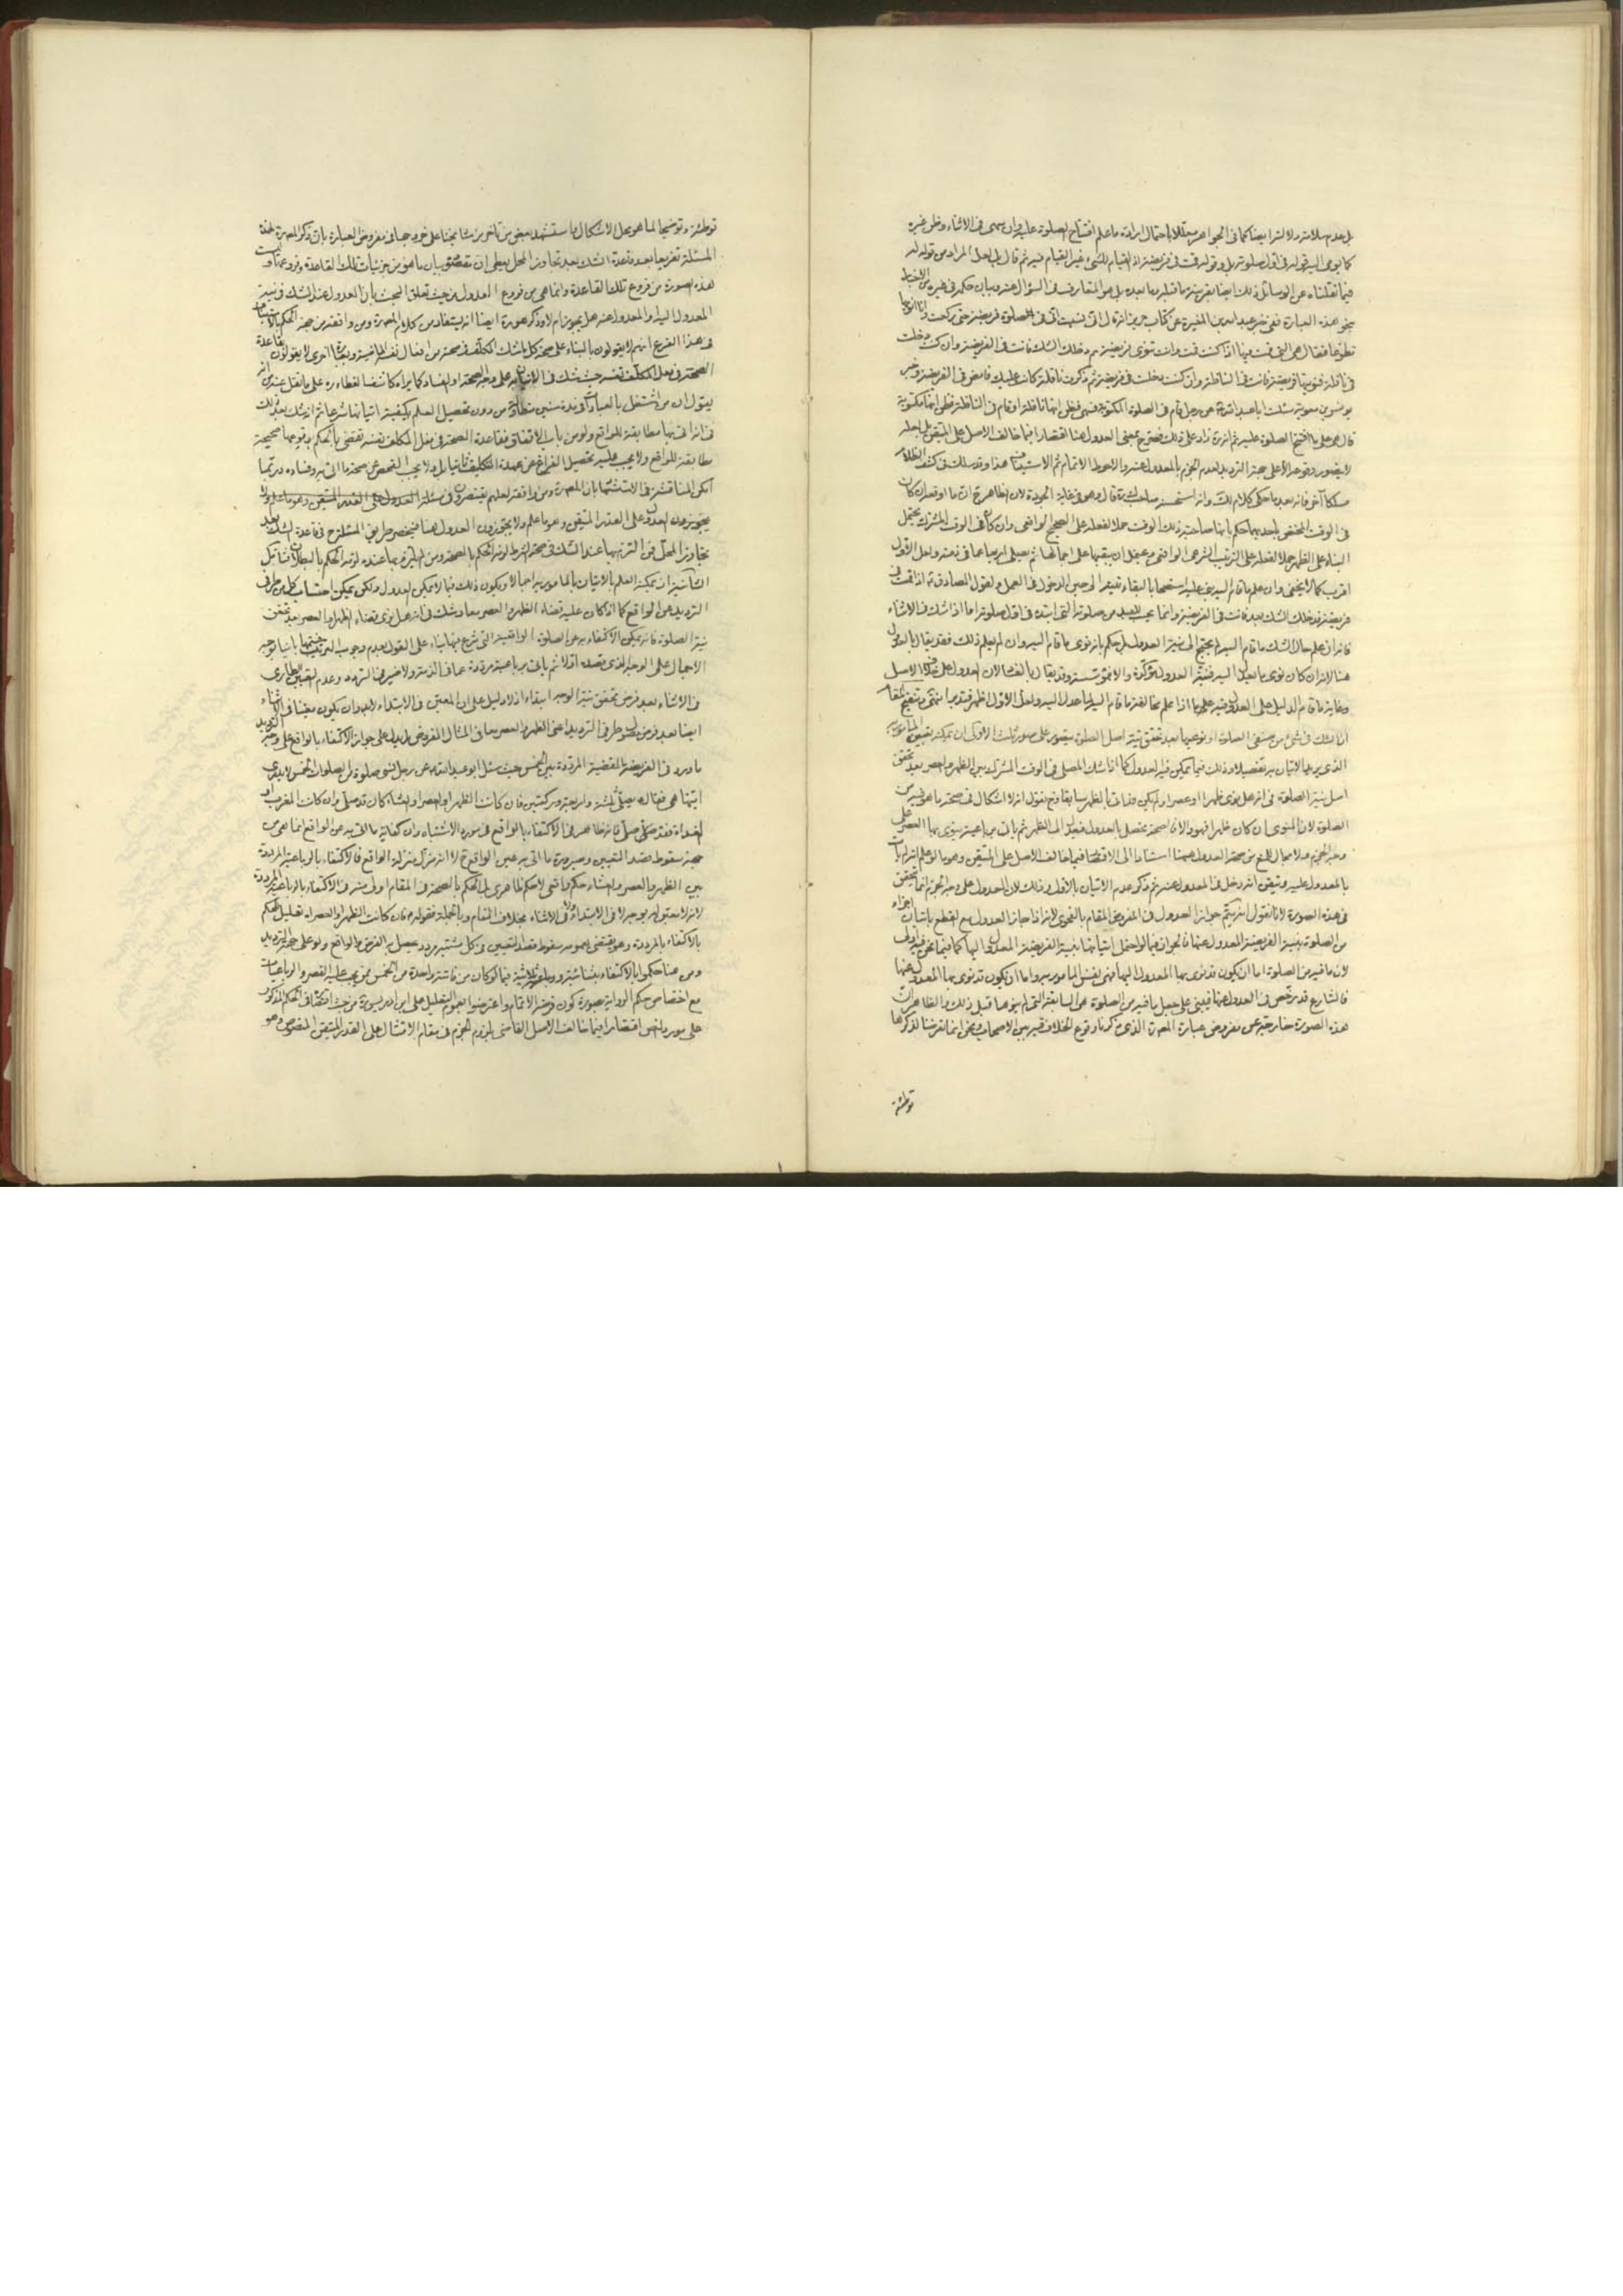 بل عدم سلامته ولا لترا ايضا كما فى الجواهر معللا باحتمال ارادة ما علم افتتاح الصلوة عليه وان سهى فى الاثناء وظن غيره
كما يومى اليه قوله فى اول صلوته بل وقوله قمت فى فريضة اذ القيام للشىء غير القيام فيه ثم قال بل لعل المراد من قوله له
فيما نقلناه عن الوسائل ذلك ايضا بقرينة ما قبله وما بعده بل هو المتعارف فى السؤال عنه وبيان حكمه فى غيره من الاخبار
بنحو هذه العبارة ففى خبر عبد الله بن المغيرة عن كتاب حريز انه قال انى نسيت انى فى الصلوة فريضة حتى ركعت وانا انويها
تطوعا فقال هى التى قمت فيها اذا كنت قمت وانت تنوى فريضة ثم دخلك الشك فانت فى الفريضة وان كنت دخلت
فى نافلة فنويتها فريضة فانت فى النافلة وان كنت دخلت فى فريضة ثم ذكرت نافلة كانت عليك فامض فى الفريضة وخبر
يونس بن معوية سئلت ابا عبد الله عن رجل قام فى الصلوة المكتوبة فسهى فظن انها نافلة او قام فى النافلة فظن انها مكتوبة
قال هى على ما افتتح الصلوة عليه ثم انه زاد على ذلك
لا يتصور وقوعه الا على جهة الترديد لعدم الجزم بالمعدول عنه والاحوط الاتمام ثم الاستيناف هذا وقد سلك فى كشف الظلام
مسلكا آخر فانه بعد ما حكى كلام
فى الوقت المختص باحديهما حكم بانها صاحبة ذلك الوقت حملا لفعله على الصحيح الواقعى وان كان فى الوقت المشترك يحتمل
البناء على الظهر حملا لفعله على الترتيب الشرعى الواقعى ويحتمل ان يبقيها على اجمالها ثم يصلى اربعا عما فى ذمته ولعل الاول
اقرب كما لا يخفى وان علم ما قام اليه بنى عليه استصحابا لبقاء
فريضة فدخلك الشك بعد فانت فى الفريضة وانما يحسب للعبد من صلوته التى ابتدء فى اول صلوته اما اذا شك فى الاثناء
فانه ان علم حال الشك ما قام اليه لم يحتج الى نية العدول بل حكم بانه نوى ما قام اليه وان لم يعلم ذلك فقد يقال بالعدول
هنا لانه ان كان نوى ما يعدل اليه فنية العدول مؤكدة والا فمؤسسة وقد يقال بالعدم لان العدول على خلاف الاصل
وغاية ما قام الدليل على العدول
اما الشك فى شىء من صنفى الصلوة او نوعيها بعد تحقق نية اصل الصلوة يتصور على صور ثلث الاولى ان يمكنه تعيين المامور به
الذى يريد الاتيان به تفصيلا وذلك فيما يمكن فيه العدول كما اذا شك المصلى فى الوقت المشترك بين الظهر والعصر بعد تحقق
اصل نية الصلوة فى انه هل نوى ظهرا او عصرا ولم يكن قد اتى بالظهر سابقا وح نقول انه لا اشكال فى صحة ما هو فيه من
الصلوة لان المنوى ان كان ظهرا فهو والا فالصحة تحصل بالعدول فيعدل الى الظهر ثم ياتى برباعية ينوى بها العصر على
وجه الجزم ولا مجال للمنع من صحة العدول ههنا استنادا الى الاقتصار فيما خالف الاصل على المتيقن وهو ما لو علم انه لم يات
بالمعدول عليه وتيقن انه دخل فى المعدول عنه ثم ذكر عدم الاتيان بالاول وذلك لان العدول على وجه الجزم انما يتحقق
فى هذه الصورة لانا نقول انه يتم جواز العدول فى المفروض المقام بالفحوى لانه اذا جاز العدول مع القطع باتيان اجزاء
من الصلوة بنية الفريضة المعدول عنها فالجواز فيما لو احتمل اتيانها بنية الفريضة المعدول اليها كما فيما نحن فيه اولى
لان ما فيه من الصلوة اما ان يكون قد نوى بها المعدول اليها فهى نفس المامور به واما ان يكون قد نوى بها المعدول عنها
فالشارع قد رخص فى العدول عنها فيبنى على جعل ما فيه من الصلوة هى السابقة التى لم ينوها قبل ذلك والظاهر ان
هذه الصورة خارجة عن مفروض عبارة المص ره الذى ذكرنا وقوع الخلاف فيه بين الاصحاب ونحن انما تعرضنا لذكرها
توطئة
توطئة وتوضيحا لما هو محل الاشكال واستشهد بعض من تاخر من مشايخنا على خروجها عن مفروض العبارة بان ذكر المص ره لهذه
المسئلة تفريعا بعد قاعدة الشك بعد تجاوز المحل يعطى ان مقصوده بيان ما هو من جزئيات تلك القاعدة وفروعها وليست
هذه الصورة من فروع تلك القاعدة وانما هى من فروع العدول من حيث تعلق البحث بان العدول عند الشك فى نية
المعدول اليه او المعدول عنه هل يجوز ام لا وذكر هو ره ايضا انه يستفاد من كلام المص ره ومن وافقه من جهة الحكم بالاستيناف
فى هذا الفرع انهم لا يقولون بالبناء على صحة كل ما شك المكلف فى صحته من افعال نفسه الماضية وبعبارة اخرى لا يقولون بقاعدة
الصحة فى فعل المكلف نفسه حيث شك فى الاتيان به على وجه الصحة او الفساد كما يراه كاشف الغطاء ره على ما نقل عنه من انه
يقول ان من اشتغل بالعبادات فى مدة سنين متطاولة من دون تحصيل العلم بكيفية اتيانها شرعا ثم انه شك بعد ذلك
فى انه اتى بها مطابقة للواقع ولو من باب الاتفاق فقاعدة الصحة فى فعل المكلف نفسه تقضى بالحكم بوقوعها صحيحة
مطابقة للواقع ولا يجب عليه تحصيل الفراغ عن عهدة التكليف ثانيا بل ولا يجب الفحص عن صحة ما اتى به وفساده وربما
امكن المناقشة فى الاستشهاد بان المص ره ومن وافقه لعلهم يقتصرون فى مسئلة العدول على القدر المتيقن وهو ما علم ولا
يجوزون العدول الا على القدر المتيقن وهو ما علم ولا يجوزون العدول هنا فينحصر طريق المسئلة ح فى قاعدة الشك بعد
تجاوز المحل فمن التزم بها عند الشك فى صحة الشرط لزمه الحكم بالصحة ومن لم يلتزم بها عنده لزمه الحكم بالبطلان فتامل
الثانية ان يمكنه العلم بالاتيان بالمامور به اجمالا ويكون ذلك فيما لا يمكن العدول ولكن يمكن احتساب كل من طرفى
الترديد من الواقع كما اذا كان عليه قضاء الظهر والعصر معا وشك فى انه هل نوى قضاء الظهر او العصر بعد تحقق
نية الصلوة فانه يمكن الاكتفاء به من الصلوة الواقعية التى شرع فيها بناء على القول بعدم وجوب الترتيب
الاجمال على الوجه الذى قصده اولا ثم ياتى برباعية مرددة عما فى الذمة ولا ضير فى التردد وعدم التعيين الطارى
فى الاثناء بعد فرض تحقق نية الوجه ابتداء اذ لا دليل على ان المعين فى الابتداء لابد وان يكون معينا فى الاثناء
ايضا بعد فرض تساوى طرفى الترديد اعنى الظهر والعصر معا فى المثال المفروض بل يدل على جواز الاكتفاء بالواقع على وجه الترديد
ما ورد فى الفريضة المقضية المرددة بين الخمس حيث سئل ابو عبد الله عن رجل نسى صلوة من الصلوات الخمس لا يدرى
ايتها هى فقال يصلى ثلثة واربعة وركعتين فان كانت الظهر او العصر او العشاء كان قد صلى وان كانت المغرب او
الغداة فقد صلى فانه ظاهر فى الاكتفاء بالواقع فى صورة الاشتباه وان كفاية ما اتى به عن الواقع انما هى من
جهة سقوط قصد التعيين وصيرورة ما اتى به عين الواقع لا انه نزل منزلة الواقع فالاكتفاء بالرباعية المرددة
بين الظهر والعصر والعشاء حكم واقعى لا حكم ظاهرى بل الحكم بالصحة فى المقام اولى منه فى الاكتفاء بالرباعية المرددة
لانه لا معين له بوجه لا فى الابتداء ولا فى الاثناء بخلاف المقام وبالجملة فقوله فان كانت الظهر او العصر اه تعليل للحكم
بالاكتفاء بالمرددة وهو يقتضى بعمومه سقوط قصد التعيين فى كل مشتبه مردد يحصل به الفرض الواقعى ولو على جهة الترديد
ومن هنا حكموا بالاكتفاء بثنائية ورباعية وثلاثية فيما لو كان من فاتته واحدة من الخمس ممن يجب عليه القصر
مع اختصاص حكم الرواية بصورة كون فرضه الاتمام واعترضوا لعموم التعليل على ابن ادريس ره من حيث اقتصاره فى الحكم المذكور
على مورد النص اقتصارا فيما خالف الاصل القاضى بلزوم الجزم فى مقام الامتثال على القدر المتيقن المنصوص وهو